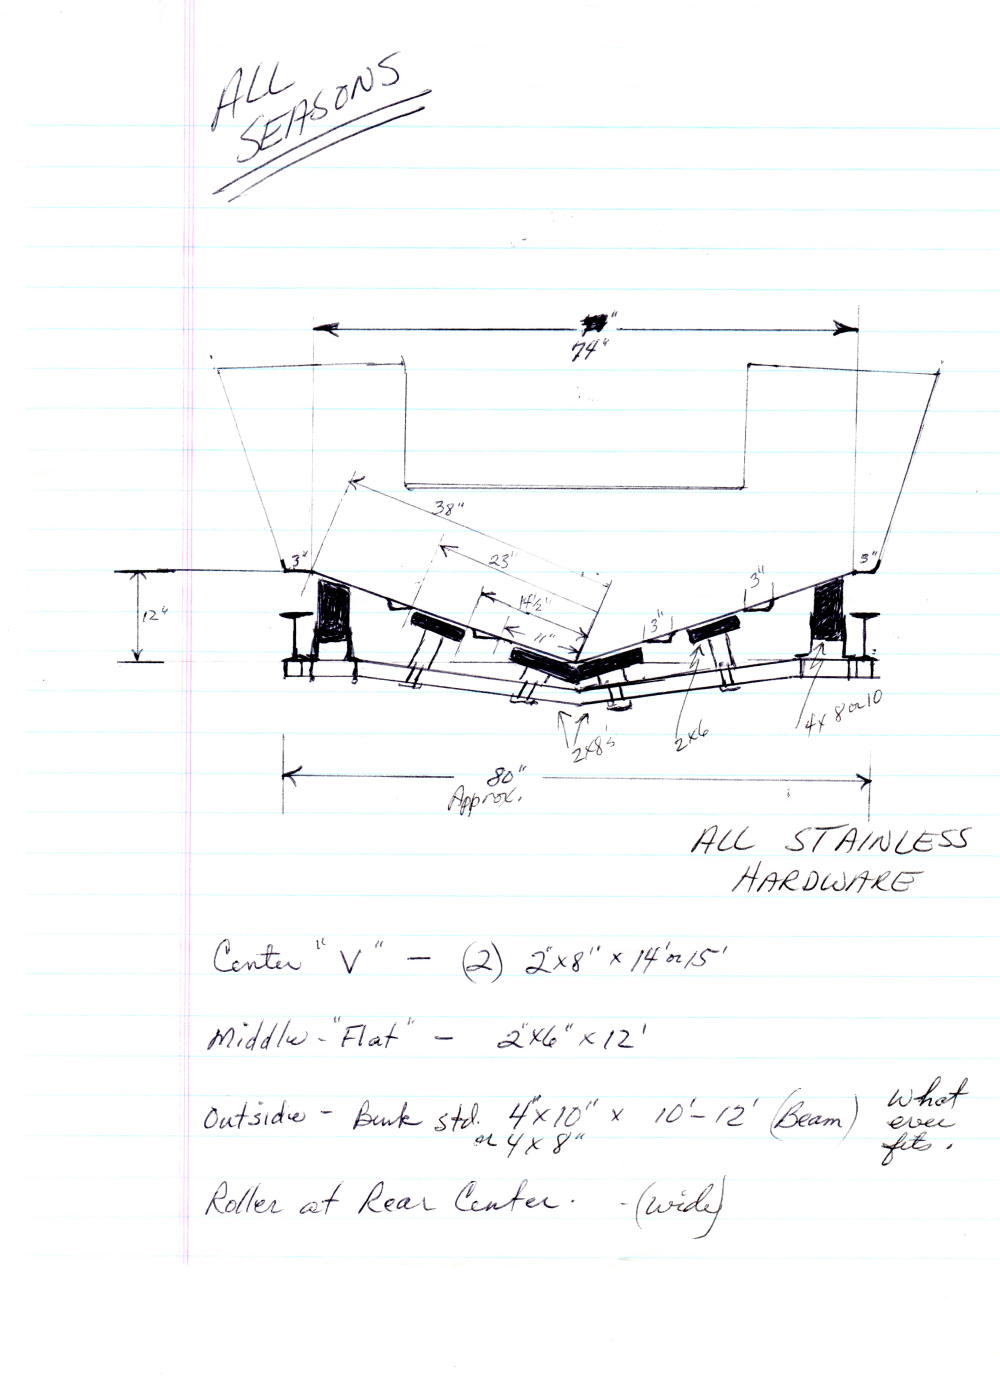 ALL
SEASONS
74"
38"
23"
14½"
11"
3"
3"
3"
3"
12"
2x8's
2x6
4x 8 or 10
80"
Approx.
ALL STAINLESS
HARDWARE
Center "V" - (2) 2"x8" x 14' or 15'
Middle - "Flat" - 2"x6" x 12'
Outside - Bunk std. 4"x10" x 10'-12' (Beam) What
or 4x8" ever
fits.
Roller at Rear Center. - (wide)